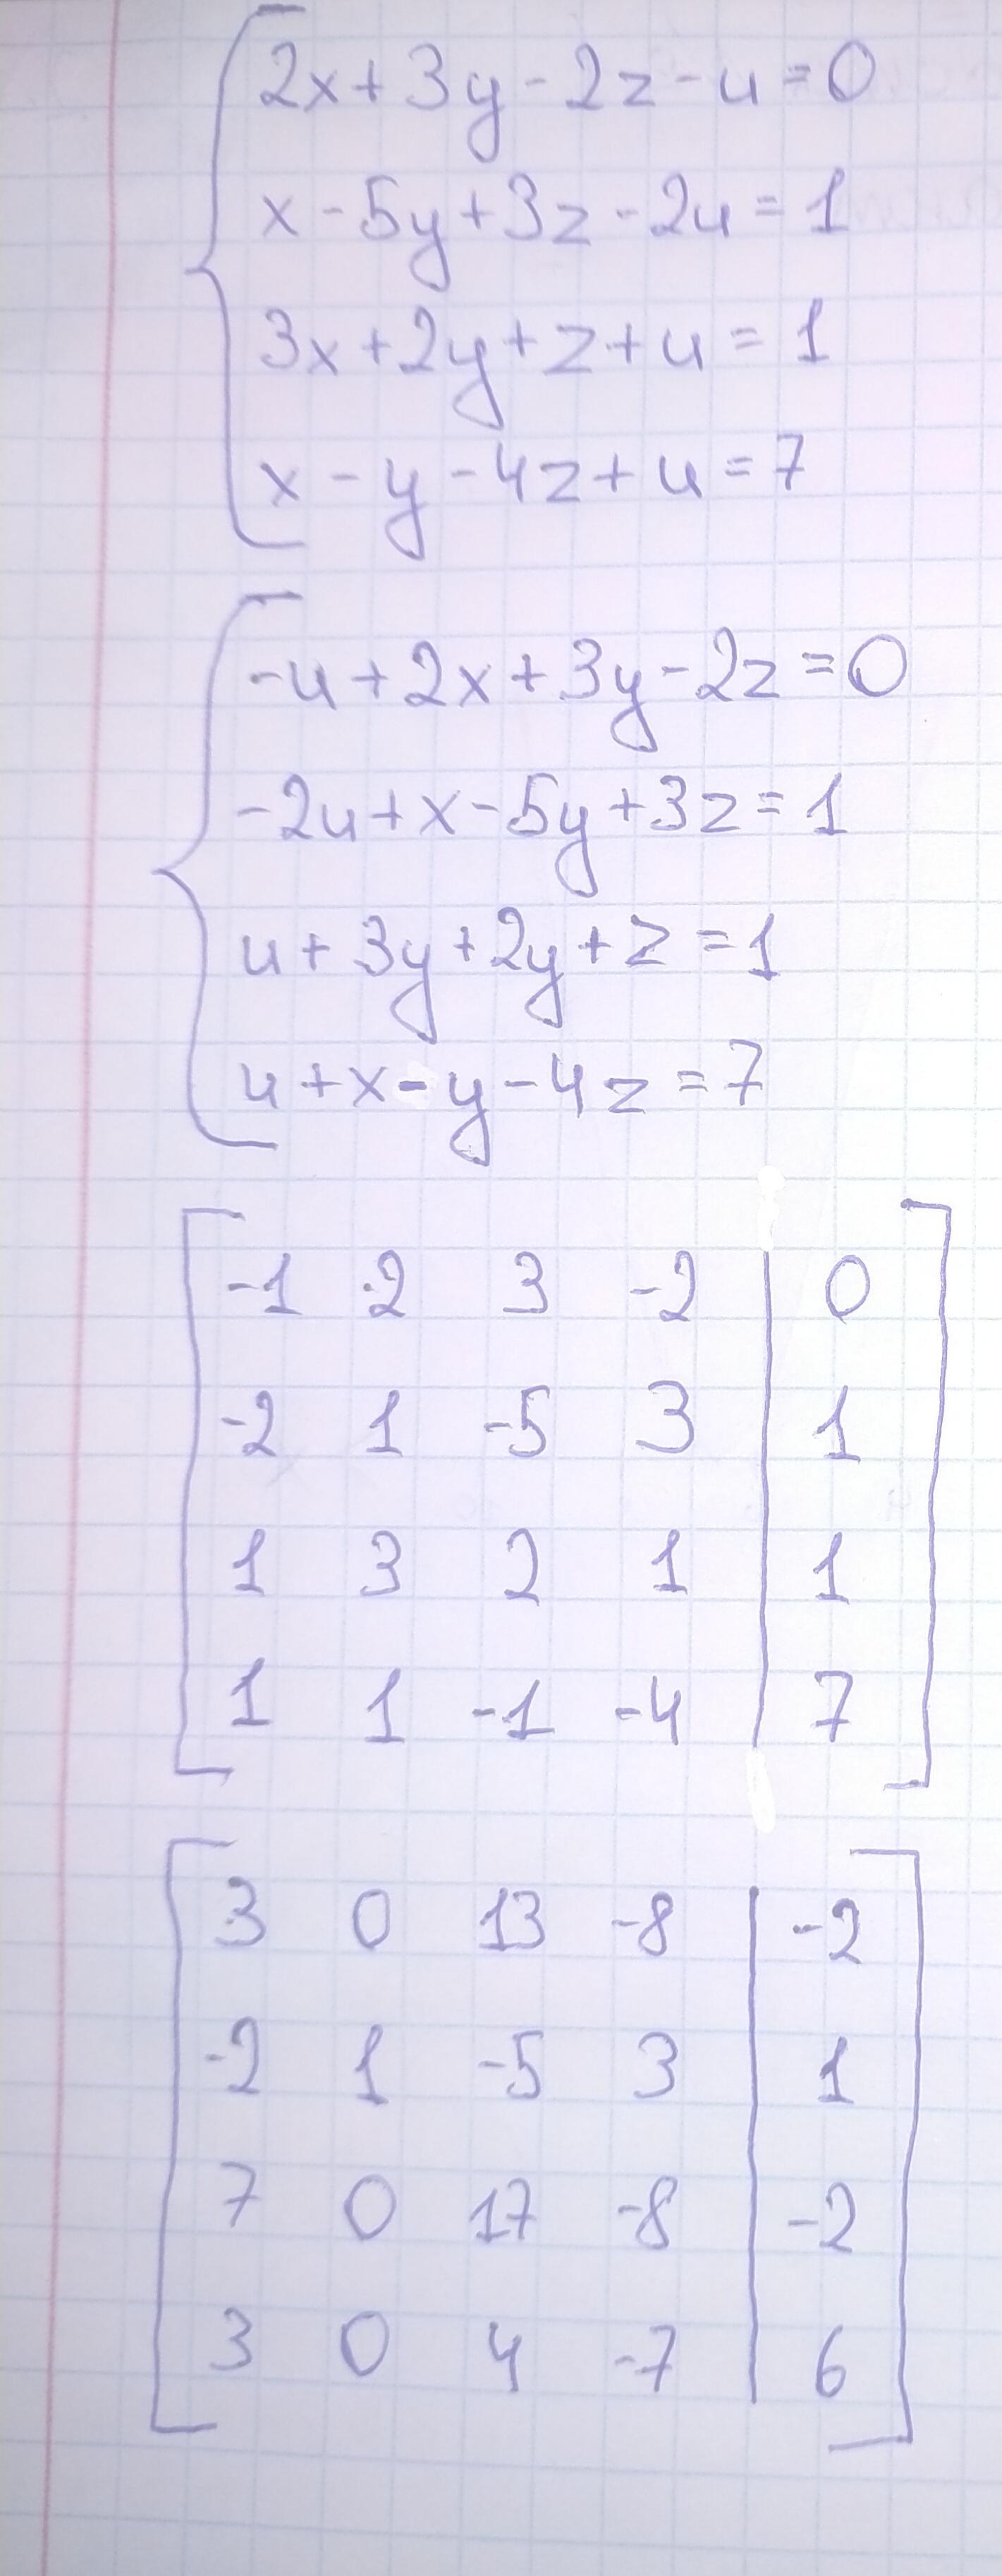 2x+3y-2z-u=0
x-5y+3z-2u=1
3x+2y+z+u=1
x-y-4z+u=7
-u+2x+3y-2z=0
-2u+x-5y+3z=1
u+3y+2y+z=1
u+x-y-4z=7
-1 2 3 -2 | 0
-2 1 -5 3 | 1
1 3 2 1 | 1
1 1 -1 -4 | 7
3 0 13 -8 | -2
-2 1 -5 3 | 1
7 0 17 -8 | -2
3 0 4 -7 | 6